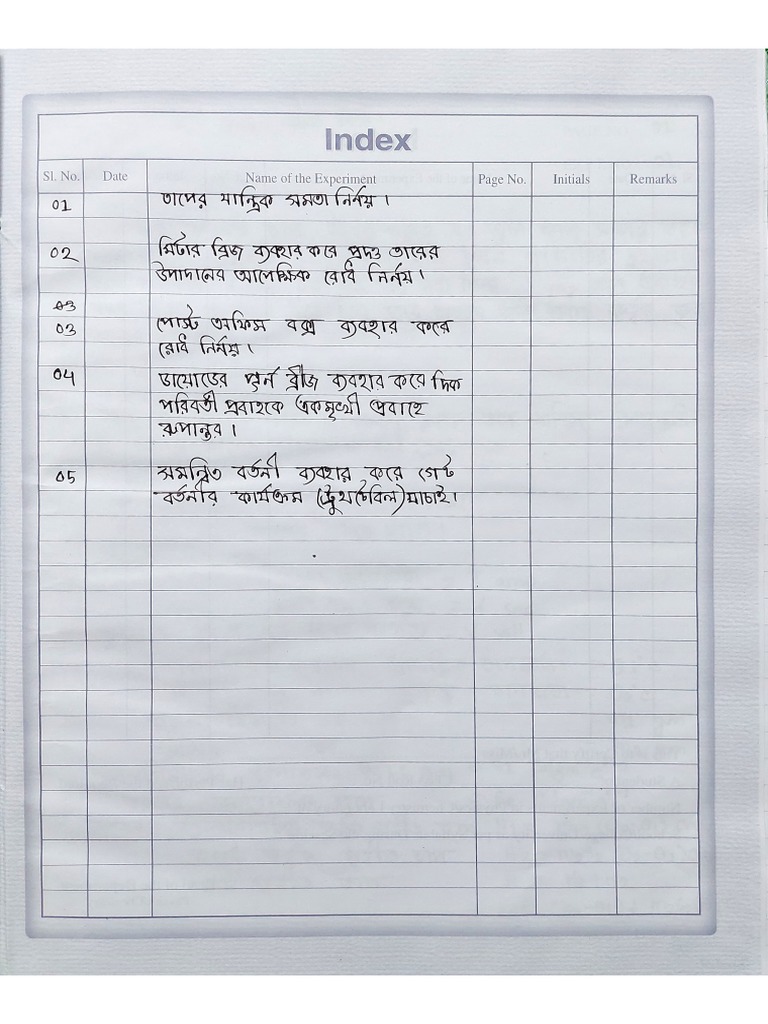 Index
Sl. No. Date Name of the Experiment Page No. Initials Remarks
01 তাপের যান্ত্রিক সমতা নির্নয়।
02 মিটার ব্রিজ ব্যবহার করে প্রদত্ত তারের
উপাদানের আপেক্ষিক রোধ নির্নয়।
03
03 পোস্ট অফিস বক্স ব্যবহার করে
রোধ নির্নয়।
04 ডায়োডের পূর্ন ব্রীজ ব্যবহার করে দিক
পরিবর্তী প্রবাহকে একমূখী প্রবাহে
রুপান্তর।
05 সমন্বিত বর্তনী ব্যবহার করে গেট
বর্তনীর কার্যক্রম (ট্রুথটেবিল) যাচাই।